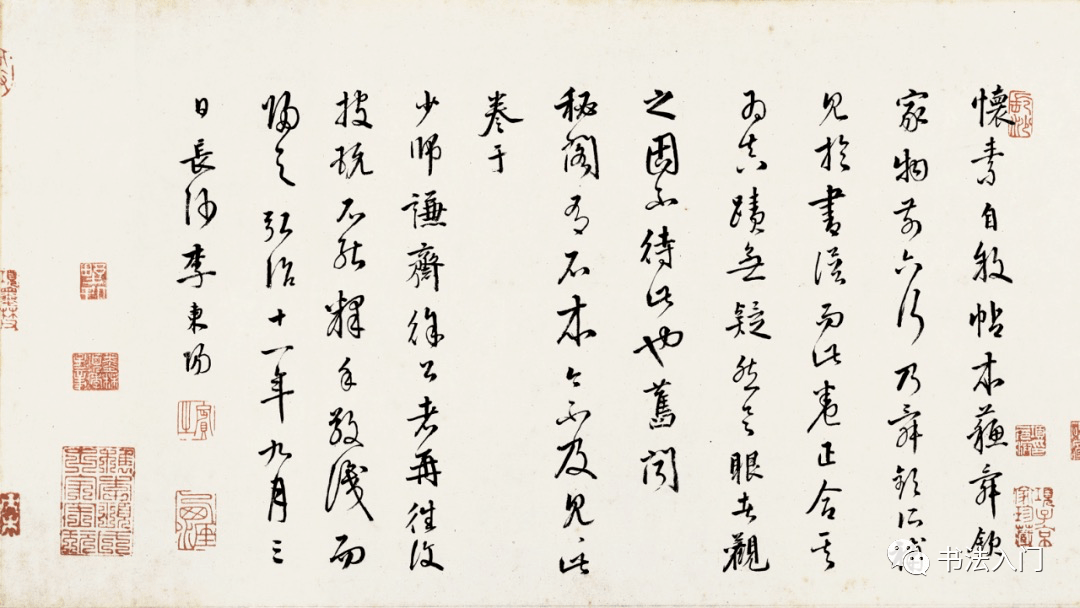 懷素自敘帖本蘇舜欽
家物前六行乃舜欽所補
見於書譜而此卷正合其
為真蹟無疑然具眼者觀
之固不待此也舊聞
秘閣有石本今不及見此
卷于
少師謙齋徐公者再往復
披玩不能釋手敬識而
歸之弘治十一年九月三
日長沙李東陽
书法入门